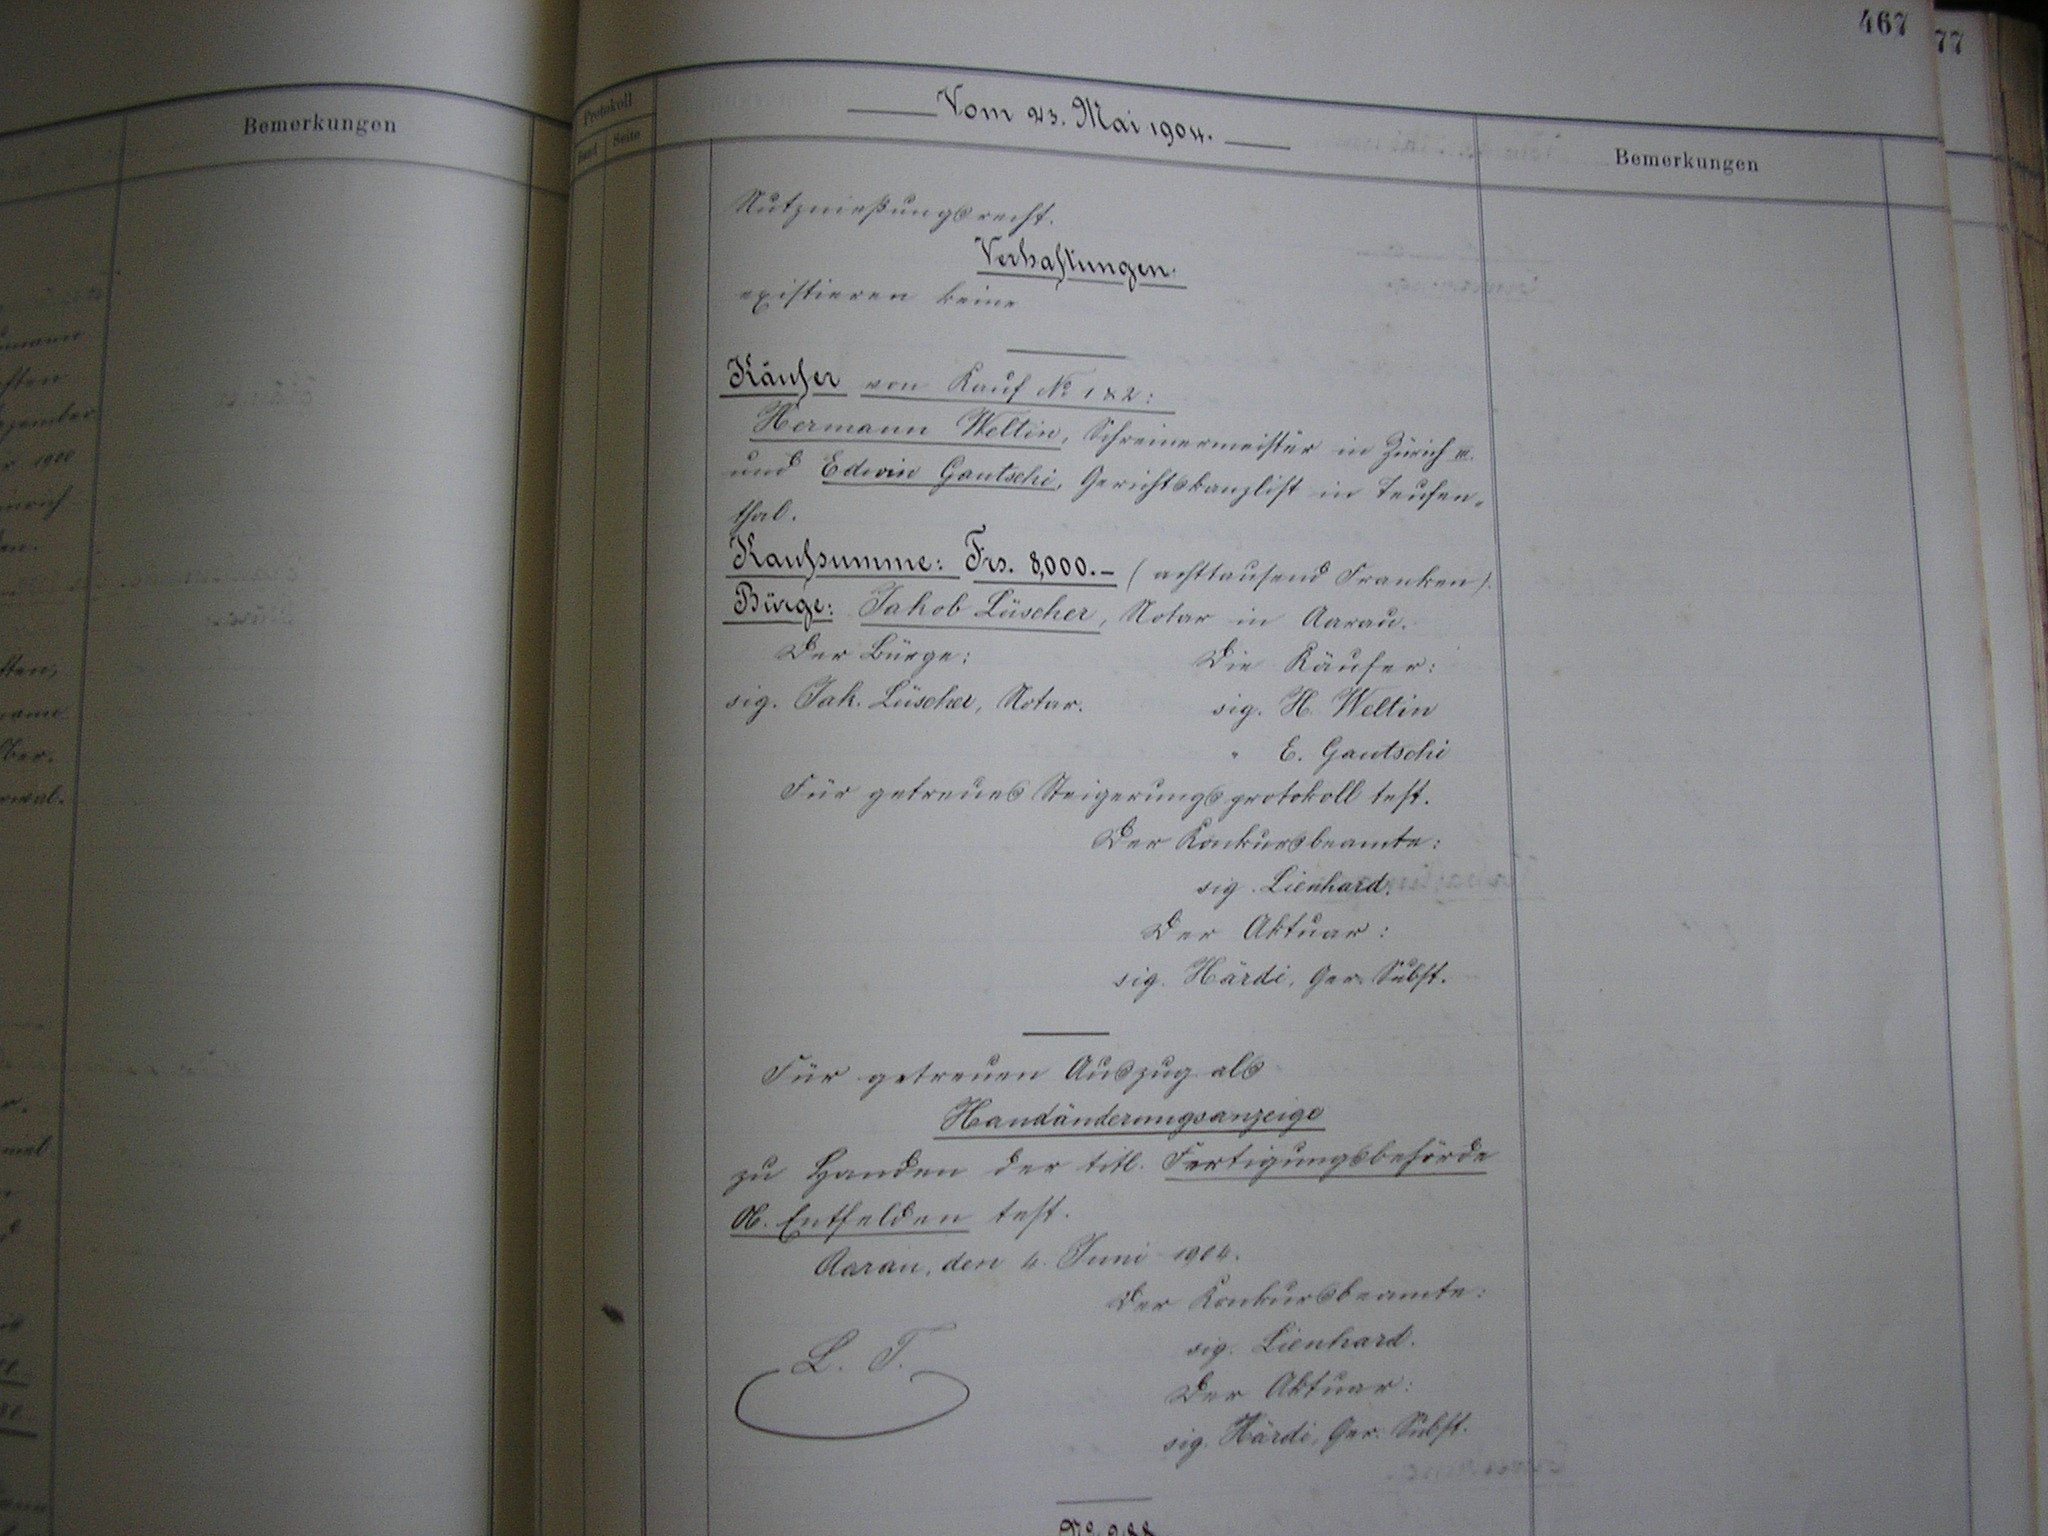 Bemerkungen
467
77
Protokoll
Band Seite
Vom 23. Mai 1904.
Bemerkungen
Nutznießungsrecht.
Verhaftungen.
existieren keine
Käufer von Kauf No 1 & 2:
Hermann Weltin, Schreinermeister in Zürich III.
und Edwin Gautschi, Gerichtskanzlist in Teufen„
thal.
Kaufsumme: Frs. 8,000.– (achttausend Franken).
Bürge: Jakob Lüscher, Notar in Aarau.
Der Bürge: Die Käufer:
sig. Jak. Lüscher, Notar. sig. H. Weltin
" E. Gautschi
Für getreues Steigerungsprotokoll test.
Der Konkursbeamte:
sig. Lienhard.
Der Aktuar:
sig. Härdi, Ger. Subst.
Für getreuen Auszug als
Handänderungsanzeige
zu Handen der titl. Fertigungsbehörde
Ob. Entfelden test.
Aarau, den 4. Juni 1904.
Der Konkursbeamte:
sig. Lienhard.
L. S.
Der Aktuar:
sig. Härdi, Ger. Subst.